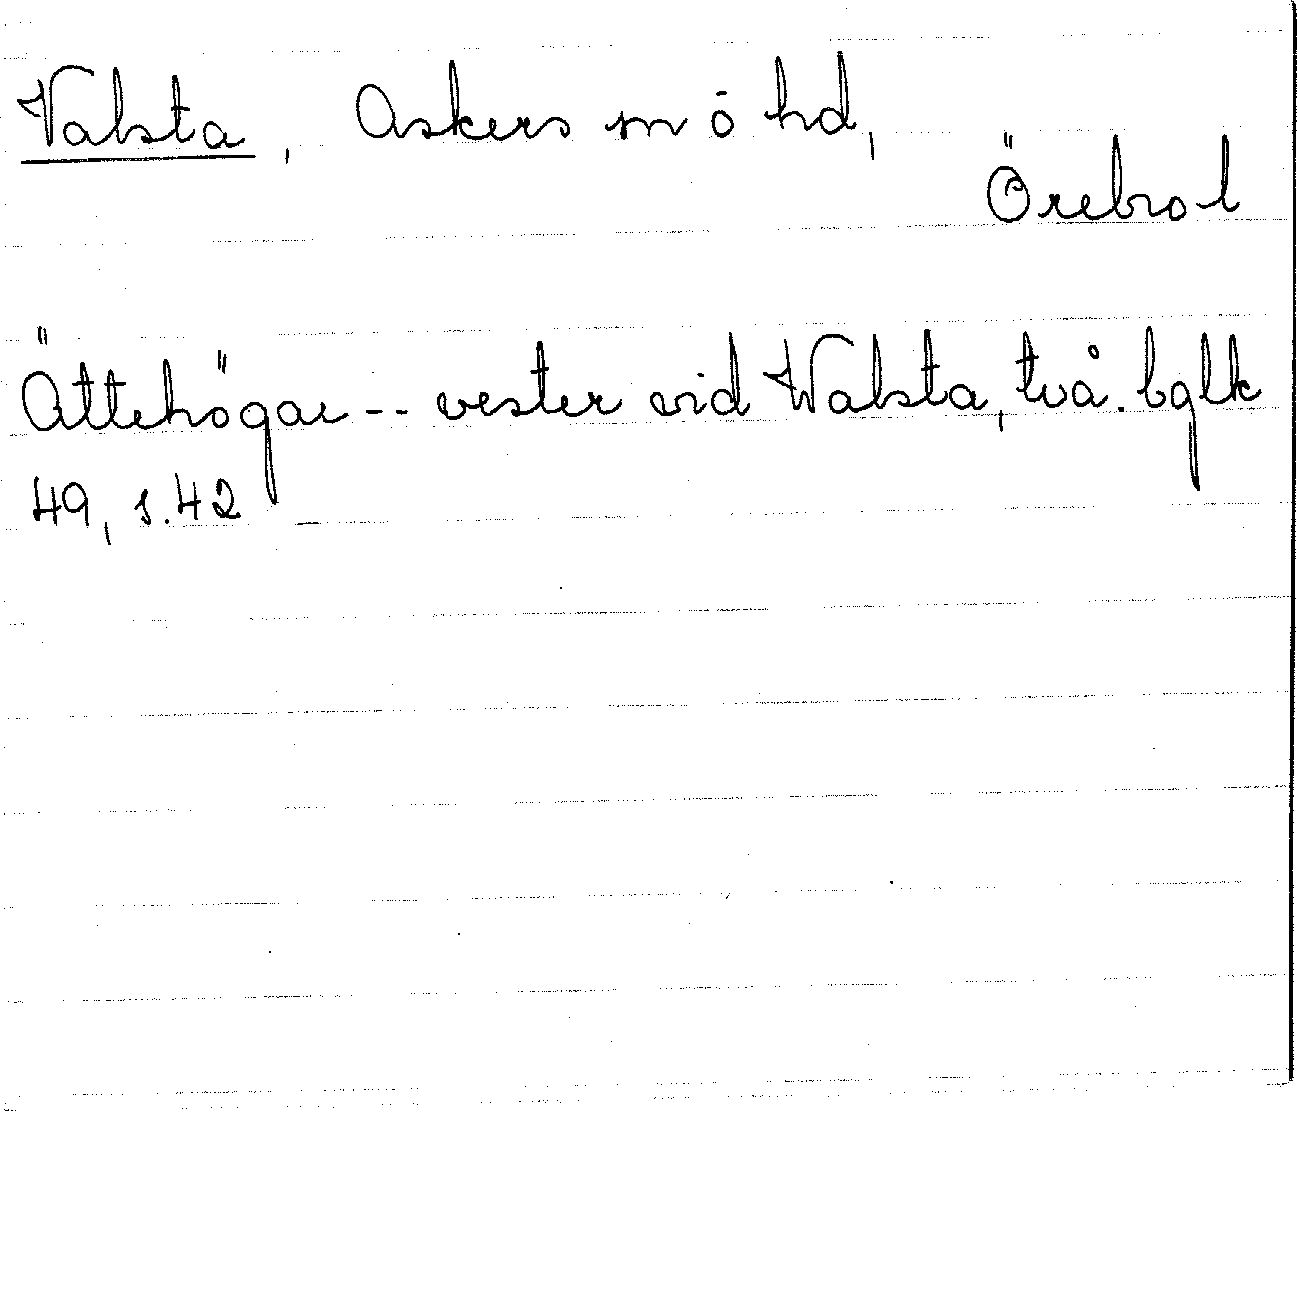 Valsta, Askers sn o hd,
Örebro l
Ättehögar -- vester vid Walsta, två. bglk
49, s. 42